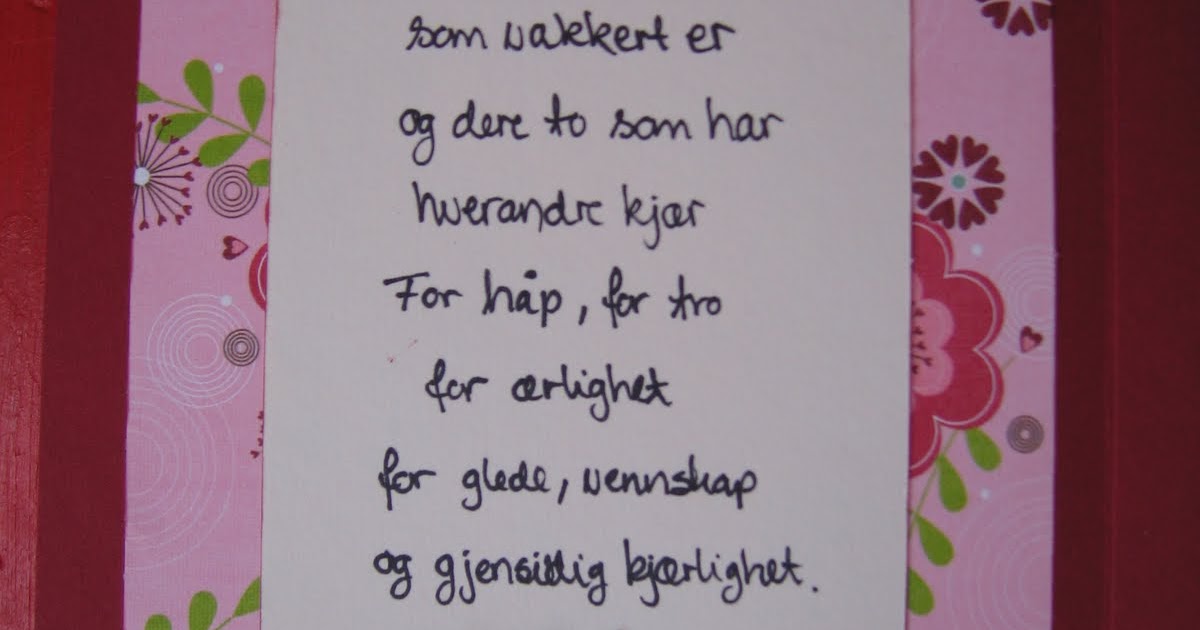 som vakkert er
og dere to som har
hverandre kjær
For håp, for tro
for ærlighet
for glede, vennskap
og gjensidig kjærlighet.